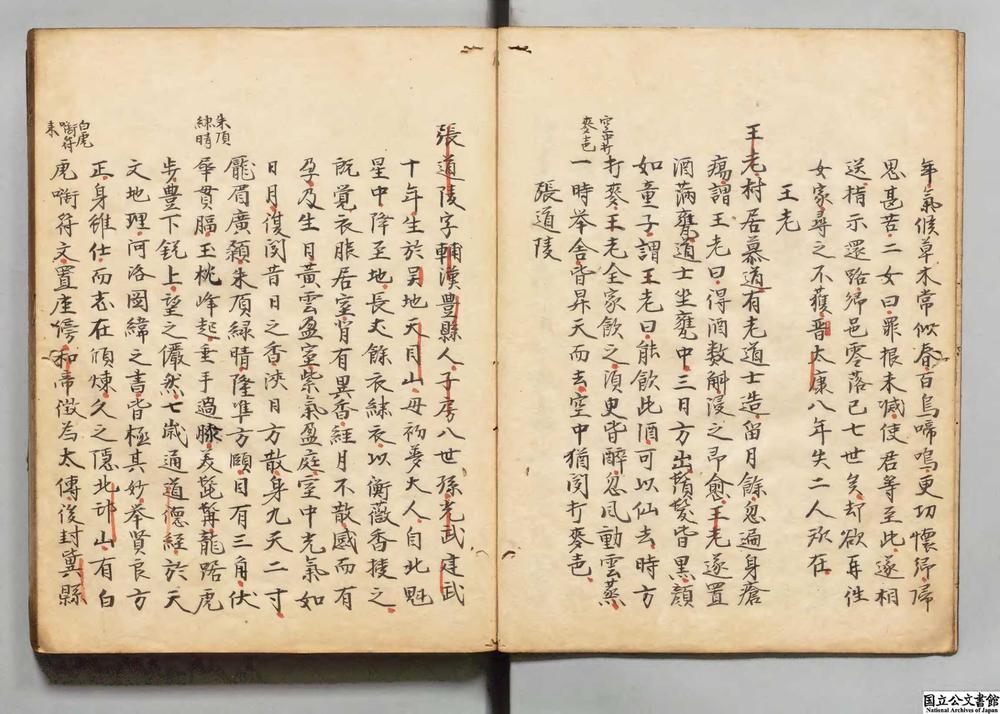 年氣候草木常似春百鳥啼鳴更切懷鄉歸
思甚苦二女曰罪根未滅使君等至此遂相
送指示還路鄉邑零落已七世矣却欲再往
女家尋之不獲晋太康八年失二人所在
王老
王老村居慕道有老道士造留月餘忽遍身瘡
瘍謂王老曰得酒数斛浸之即愈王老遂置
酒滿甕道士坐甕中三日方出鬚髪皆黒顔
如童子謂王老曰能飲此酒可以仙去時方
空中打
麥邑
打麥王老全家飲之須臾皆醉忽風動雲蒸
一時挙舍皆昇天而去空中猶聞打麥邑
張道陵
張道陵字輔漢豊縣人子房八世孫光武建武
十年生於吴地天目山母初夢大人自北魁
星中降至地長丈餘衣綉衣以衡薇香授之
既覚衣服居室皆有異香経月不散感而有
孕及生日黄雲盈室紫氣盈庭室中光氣如
日月復聞昔日之香浹日方散身九天二寸
龎眉廣顙朱頂緑晴隆準方頤目有三角伏
朱頂
緑晴
犀貫腦玉桃峰起垂手過膝美髭髯龍踞虎
步豊下鋭上望之儼然七歳通道德経於天
文地理河洛圖緯之書皆極其妙挙賢良方
正身雖仕而志在脩煉久之隠北邙山有白
白虎
啣符
来
虎啣符文置座傍和帝徴為太傅後封冀縣
国立公文書館
National Archives of Japan